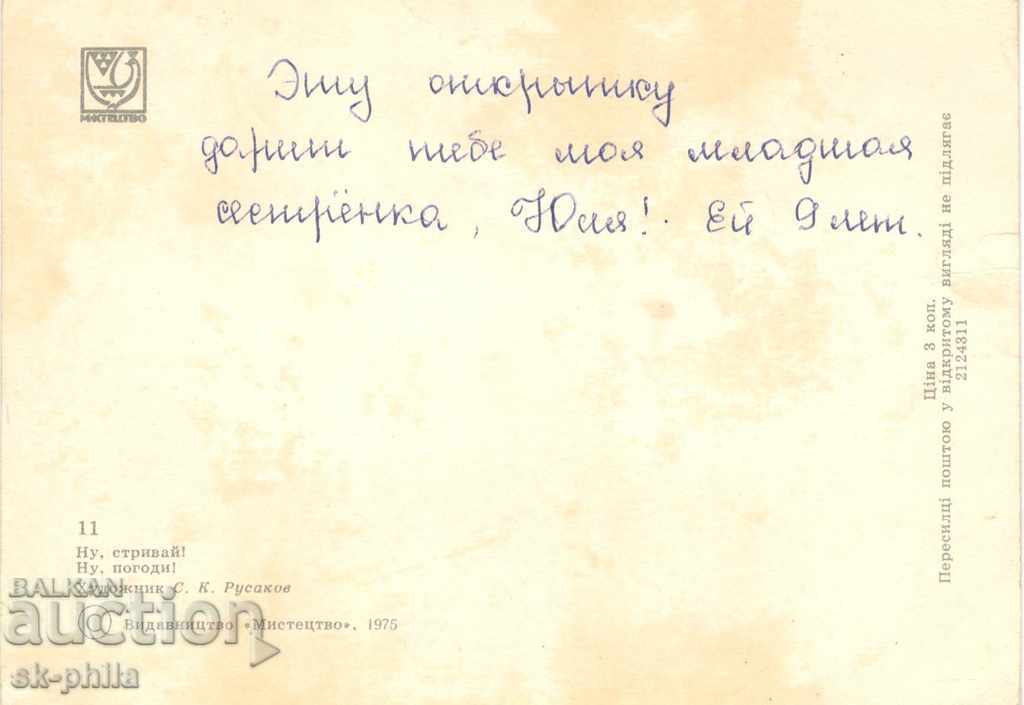 МИСТЕЦТВО
Эту открытку
дарит тебе моя младшая
сестрёнка, Юля! Ей 9 лет.
Ціна 3 коп.
Пересилці поштою у відкритому вигляді не підлягає
2124311
11
Ну, стривай!
Ну, погоди!
Художник С. К. Русаков
© Видавництво «Мистецтво», 1975
BALKAN
auction
sk-phila